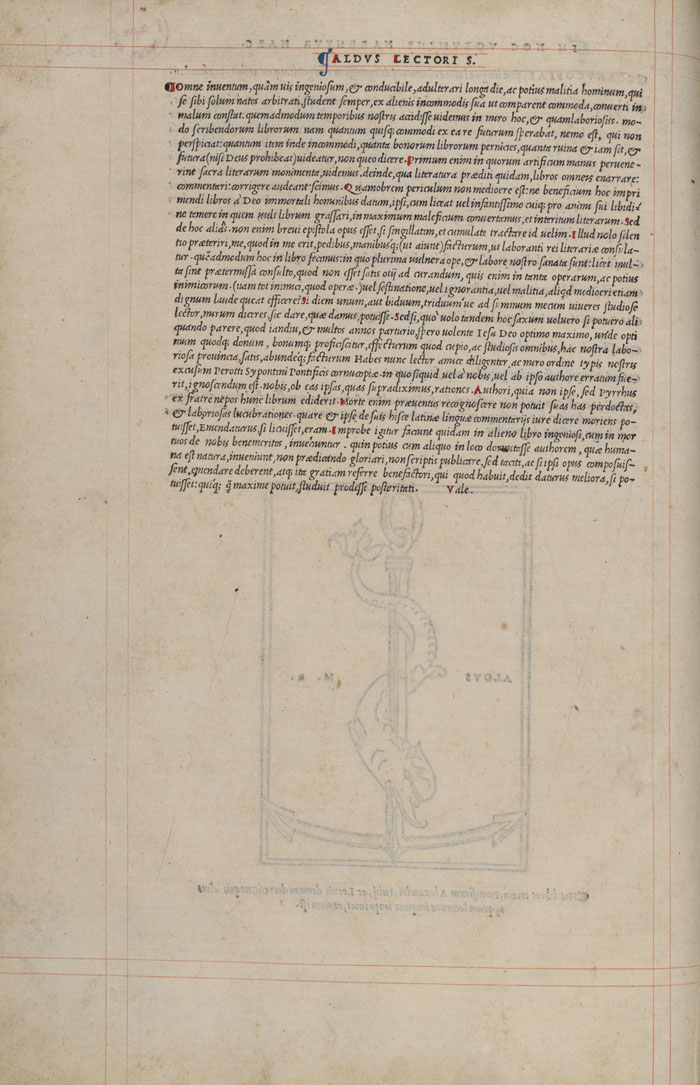 ALDVS LECTORI S.
Omne inuentum, quàm uis ingeniosum, & conducibile, adulterari longa die, ac potius malitia hominum, qui
se sibi solum natos arbitrati, student semper, ex alienis incommodis sua ut comparent commoda, conuerti in
malum constat. quemadmodum temporibus nostris accidisse uidemus in miro hoc, & quamlaborioſiſſ. mo-
do scribendorum librorum nam quantum quisq; commodi ex ea re futurum sperabat, nemo est, qui non
perspiciat: quantum item inde incommodi, quanta bonorum librorum pernicies, quanta ruina & iam sit, &
futura (nisi Deus prohibeat) uideatur, non queo dicere. Primum enim in quorum artificum manus peruene-
rint sacra literarum monimenta, uidemus. deinde, qua literatura præditi quidam, libros omneis enarrare:
commentari: corrigere audeant: scimus. Quamobrem periculum non mediocre est: ne beneficum hoc impri
mendi libros à Deo immortali hominibus datum, ipsi, cum liceat uel infantissimo cuiq; pro animi sui libidi-
ne temere in quem uuli librum grassari, in maximum maleficum conuertamus, et interitum literarum. Sed
de hoc aliàs. non enim breui epistola opus esset, si singillatim, et cumulate tractare id uelim. Illud nolo silen
tio præteriri, me, quod in me erit, pedibus, manibusq; (ut aiunt) facturum, ut laboranti rei literariæ consula-
tur. quẽadmodum hoc in libro fecimus: in quo plurima uulnera ope, & labore nostro sanata sunt: licet mul-
ta sint prætermissa consulto, quod non esset satis otij ad curandum, quis enim in tanta operarum, ac potius
inimicorum. (nam tot inimici, quot operæ.) uel festinatione, uel ignorantia, uel malitia, aliqd mediocri etiam
dignum laude queat efficere? Si diem unum, aut biduum, triduum'ue ad summum mecum uiueres studiose
lector, mirum diceres, sic dare, quæ damus, potuisse. Sed si, quo uolo tandem hoc saxum uoluero si potuero ali
quando parere, quod iandiu, & multos annos parturio, spero uolente Iesu Deo optimo maximo, unde opti
mum quodq; donum, bonumq; proficiscitur, effecturum quod cupio, ac studiosis omnibus, hac nostra labo-
riosa prouincia, satis, abundeq; facturum Habes nunc lector amice diligenter, ac miro ordine typis nostris
excusum Perotti Sypontini Pontificis cornucopiæ. in quo siquid uel à nobis, uel ab ipso authore erratum fue-
rit, ignoscendum est. nobis, ob eas ipsas, quas supradiximus, rationes. Authori, quia non ipse, sed Pyrrhus
ex fratre nepos hunc librum ediderit. Morte enim præuentus recognoscere non potuit suas has perdoctas,
& laboriosas lucubrationes. quare & ipse de suis hisce latinæ linguæ commentarijs iure dicere moriens po-
tuisset, Emendaturus, si licuisset, eram. Improbe igitur faciunt quidam in alieno libro ingeniosi, cum in mor
tuos de nobis benemeritos, inuehuntur. quin potius cum aliquo in loco dormitasse authorem, quæ huma-
na est natura, inueniunt, non prædicando gloriari, non scriptis publicare, sed taciti, ac si ipsi opus composuis-
sent, emendare deberent, atq; ita gratiam referre benefactori, qui quod habuit, dedit daturus meliora, si po-
tuisset: quisq; q̃ maxime potuit, studuit prodesse posteritati. Vale.
ALDVS M. R.